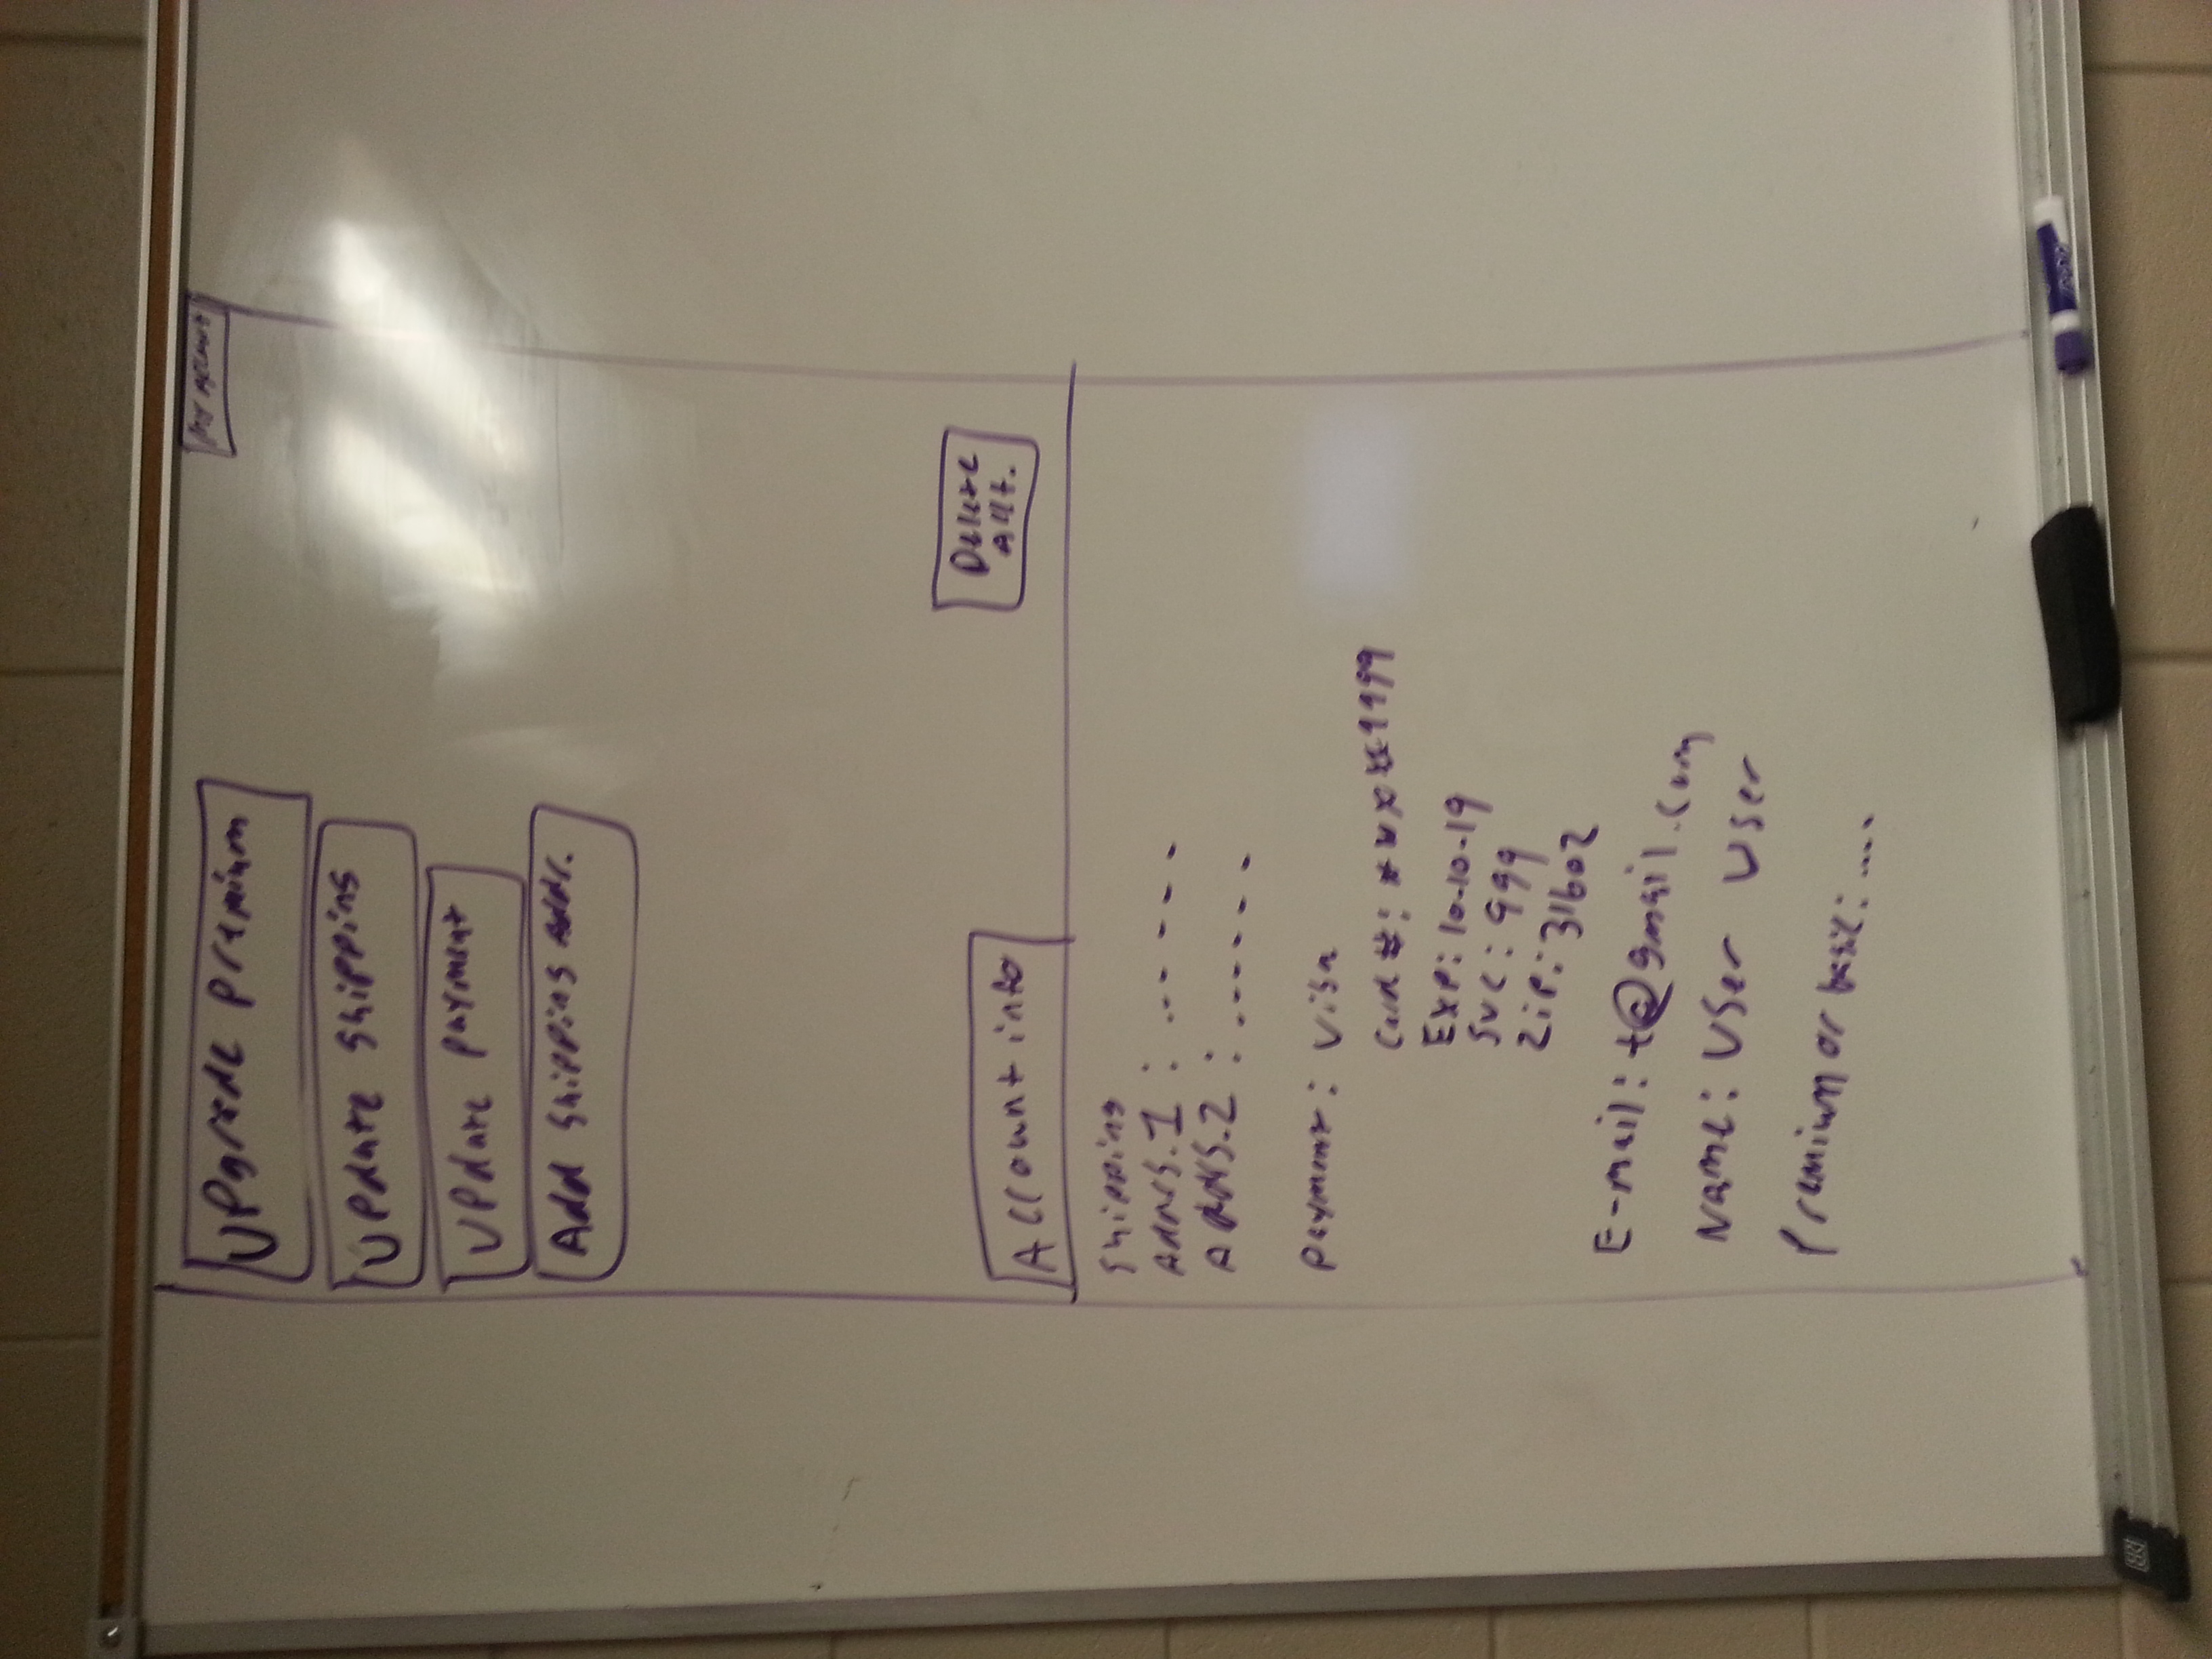 Upgrade premium
My Account
Update shipping
Update payment
Add shipping Addr.
Delete
Acct.
Account info
Shipping
Addrs.1 : ......
Addrs.2 : ......
Payment: Visa
Card #: ****1199
Exp: 10-10-19
SVC: 999
Zip: 31602
E-mail: t@gmail.com
Name: User User
Premium or basic: ....